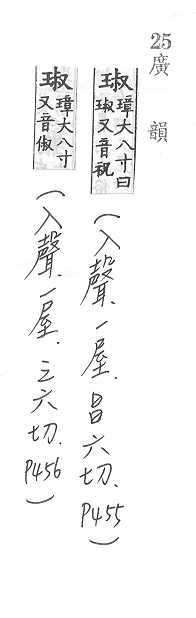 25廣韻
琡 璋大八寸曰琡又音祝
(入聲.一屋.昌六切.P455)
琡 璋大八寸又音俶
(入聲.一屋.之六切.P456)